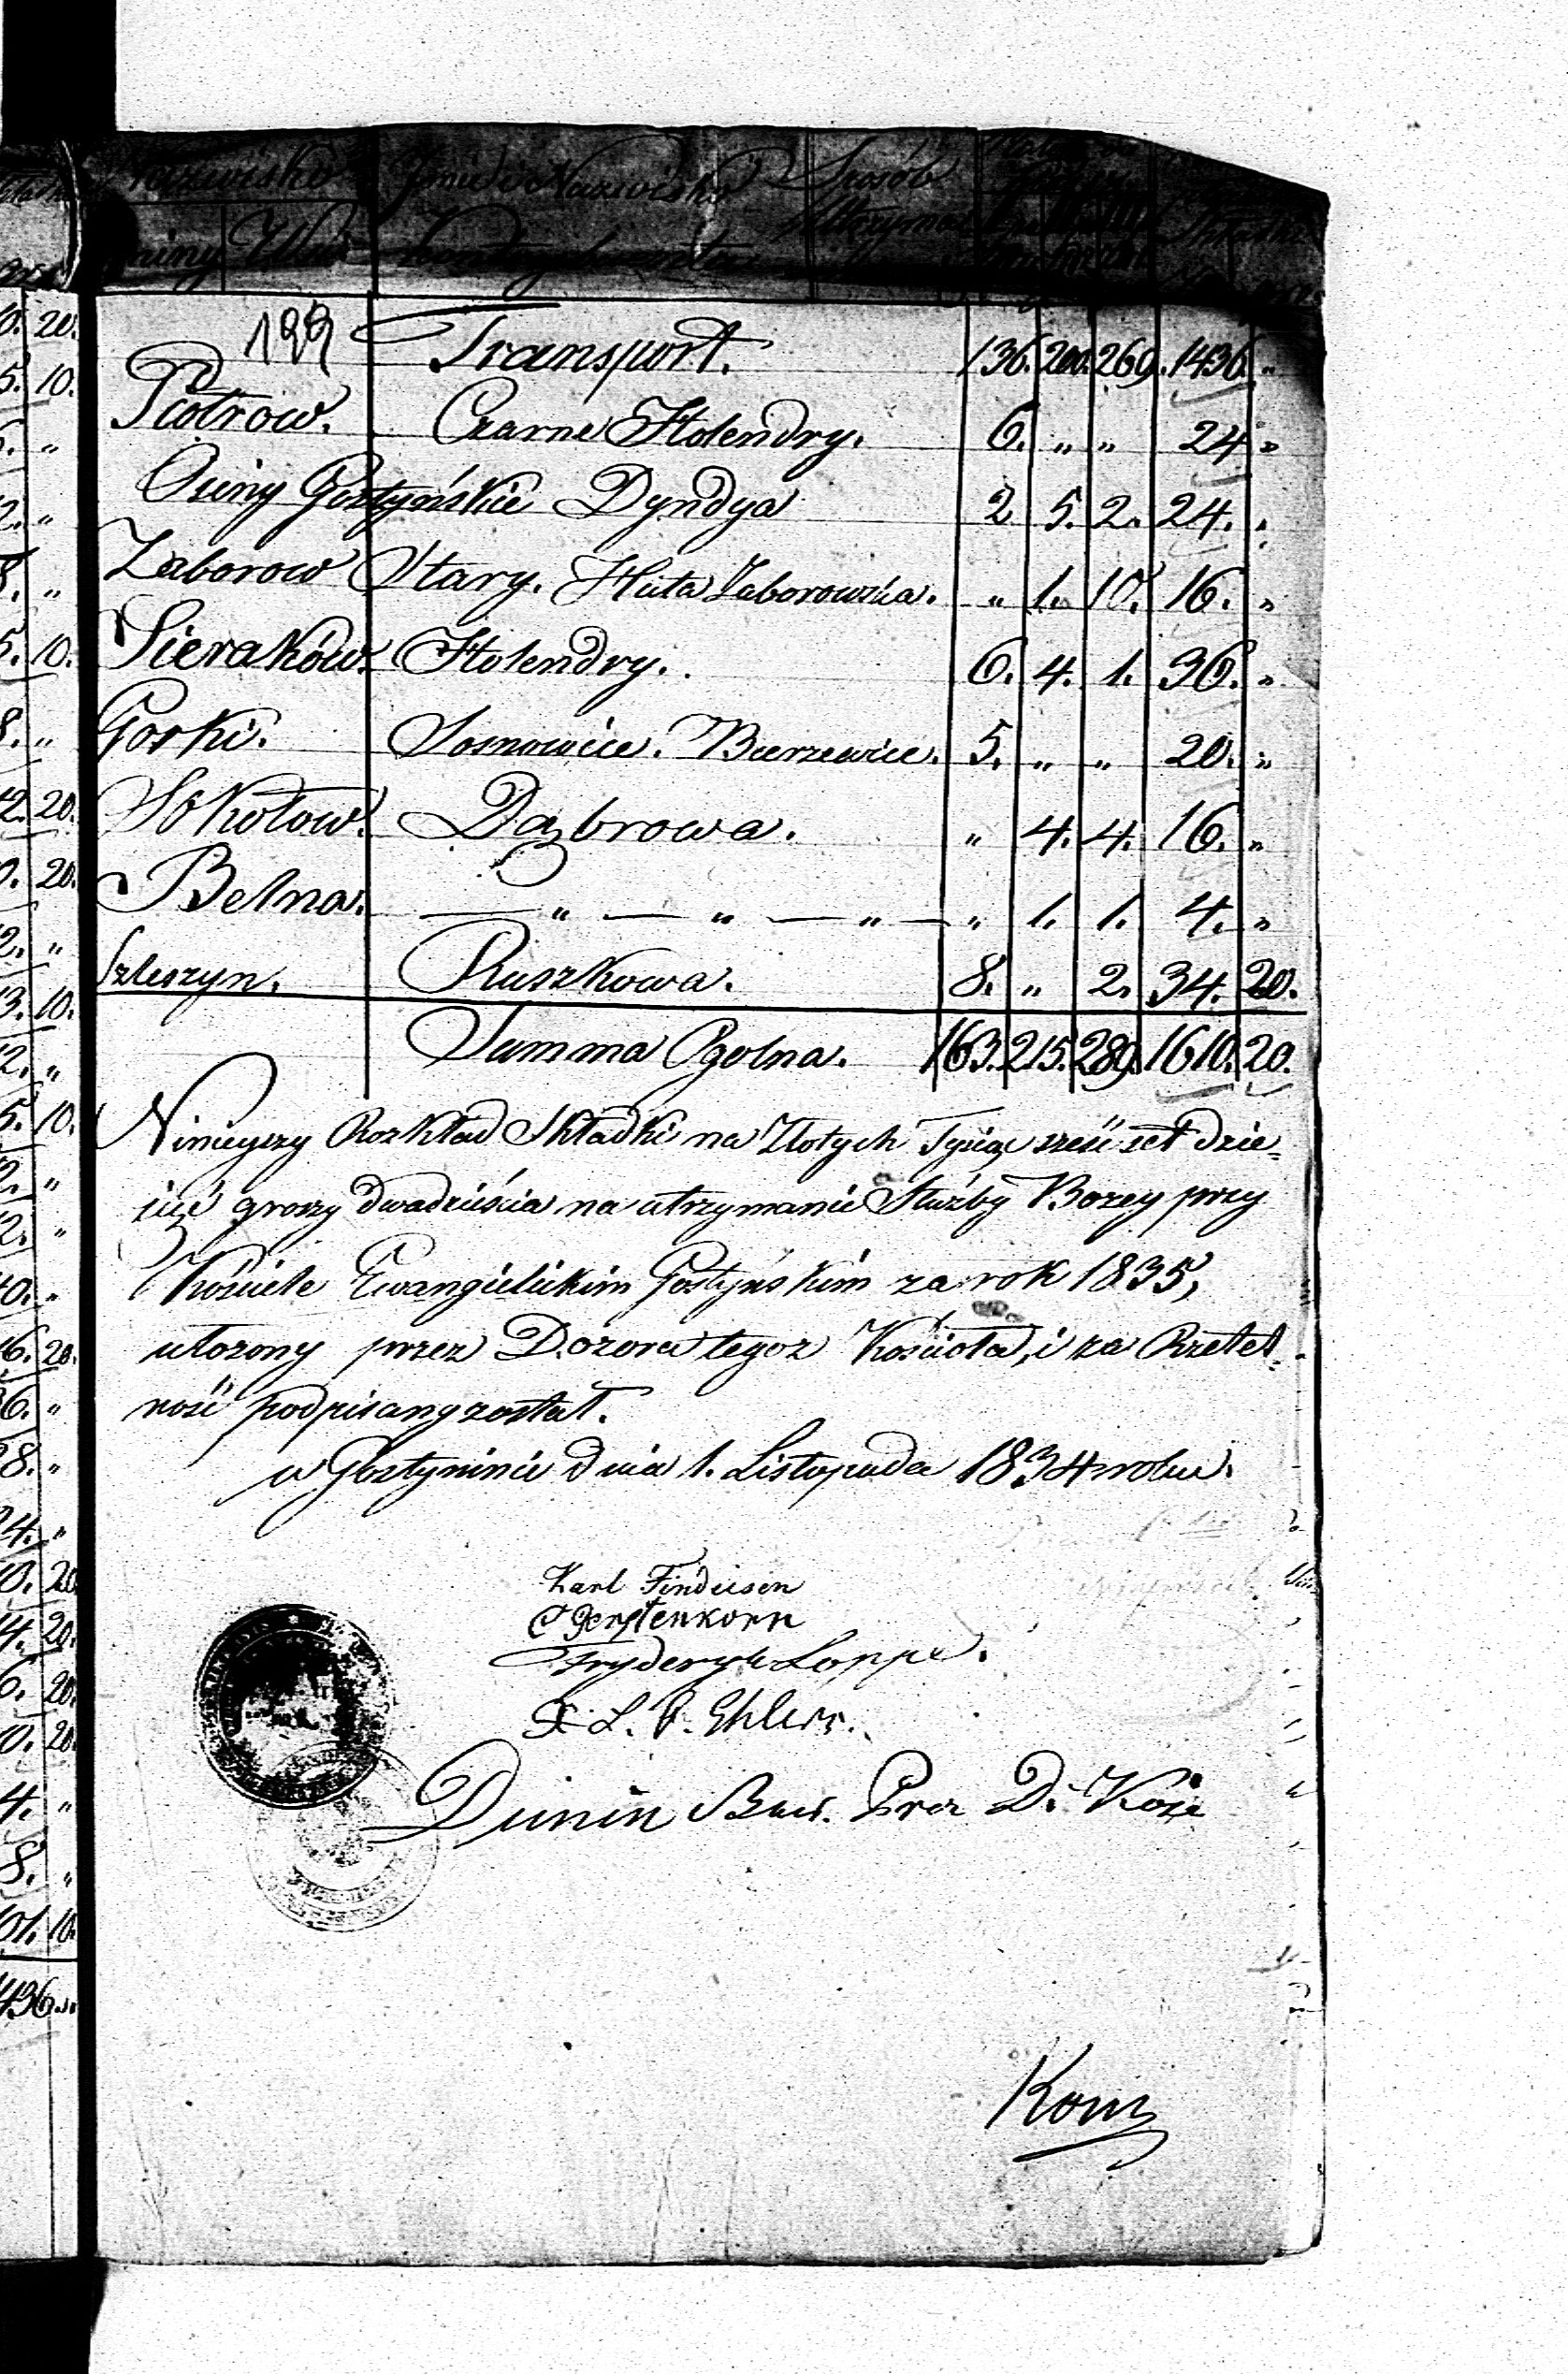 Nazwisko Jmie i Nazwisko Sposób
Gminy Wsi Kontrybuenta
199 Transport. 136. 200. 269. 1436. „
Piotrow. Czarne Holendry. 6. „ „ 24 „
Osiny Gostyńskie Dyndya 2 5. 2. 24. „
Zaborow Stary. Huta Zaborowska. „ 1. 10. 16. „
Sieraków. Holendry. 6. 4. 1. 36. „
Gorki. Sosnowice. Bierzewice. 5. „ „ 20. „
Sokołow. Dąbrowa. „ 4. 4. 16. „
Belna. — „ — „ — „ — „ 1. 1. 4. „
Szleszyn. Ruszkowa. 8. „ 2. 34. 20.
Summa Ogolna. 163. 215. 289. 1610. 20.
Ninieyszy Rozkład Składki na Złotych Tysiąc sześć set dzie=
sięć groszy dwadzieścia na utrzymanie Służby Bozey przy
Kościele Ewangielickim Gostyńskim za rok 1835,
ułozony przez Dozora tegoz Kościoła, i za Rzetel=
ność podpisany został.
w Gostyninie dnia 1. Listopada 1834 roku.
Karl Findeisen
C Gerstenkorn
Fryderyk Loppe.
X L. P. Ehlers.
Dunin Bur. Prez D. Kośc